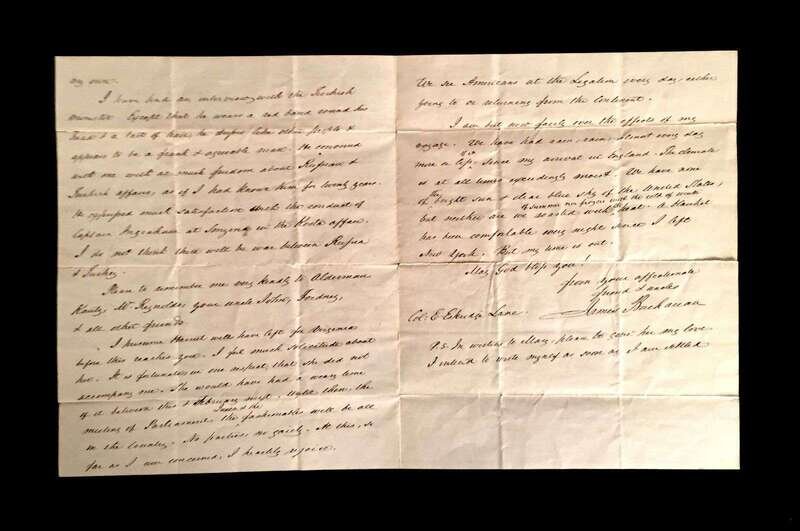 my own.
I have had an interview with the Turkish
minister. Except that he wears a red band round his
& a of he dresses like other people &
appears to be a frank & agreeable man. He conversed
with me with as much freedom about Russian &
Turkish affairs, as if I had known him for twenty years.
He expressed much satisfaction with the conduct of
Captain Ingraham at Smyrna in the Kosta affair.
I do not think there will be war between Russia
& Turkey.
Please to remember me very kindly to Alderman
Mr Reynolds, your uncle John,
& all other friends.
I presume Harriet will have left for Virginia
before this reaches you. I feel much solicitude about
her. It is fortunate in one respect, that she did not
accompany me. She would have had a weary time
of it between this & February next. Until then, the
meeting of Parliament, the fashionables will be all
in the Country. No parties, no gaiety. At this, so
far as I am concerned, I heartily rejoice.
We see Americans at the Legation every day, either
going to or returning from the Continent.
I am but now fairly over the effects of my
voyage. We have had rain, rain, almost every day
more or less, since my arrival in England. The climate
is at all times exceedingly moist. We have none
of the bright sun & clear blue sky of the United States;
but neither are we scorched with the heat
of summer nor frozen with the cold of winter. A blanket
has been comfortable every night since I left
New York. But my time is out.
May God bless you!
from your affectionate
friend &
James Buchanan
Col: E. Eskridge Lane.
P.S. In writing to Mary, please to give her my love.
I intend to write myself as soon as I am settled